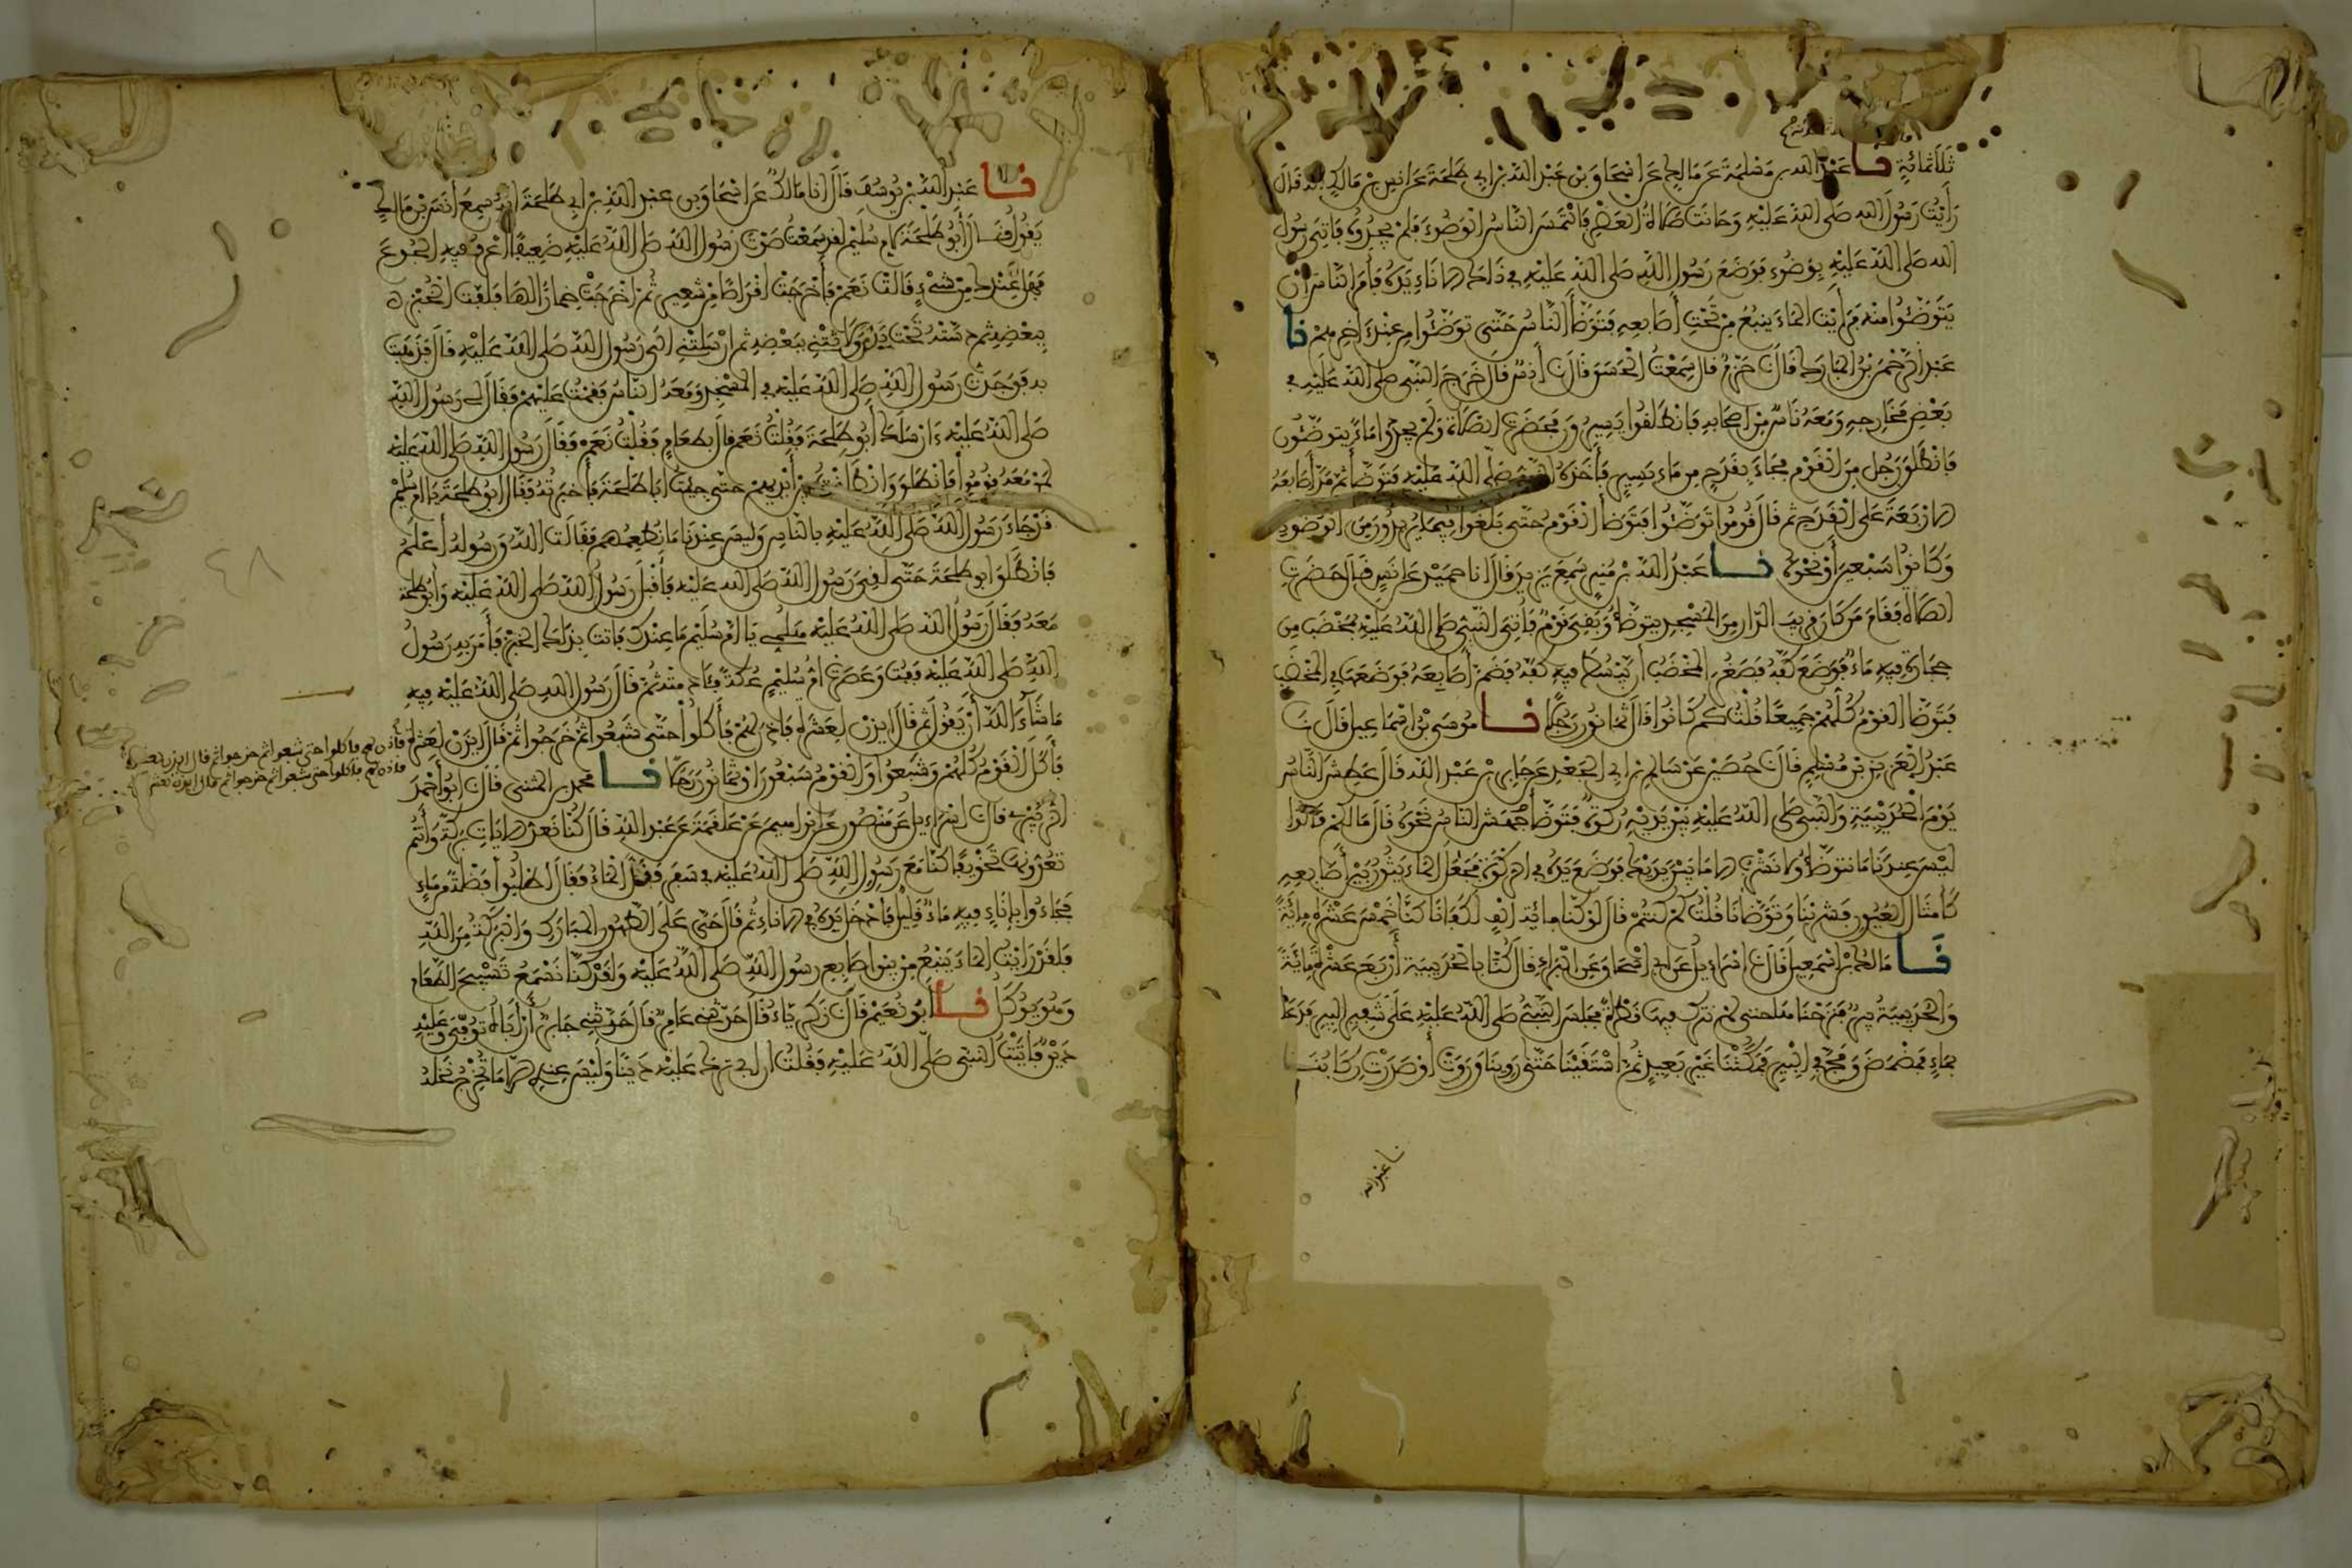 ثَلَاثمائَةٍ نا عَبْدُ الله بن مَسْلَمَةَ عَن مَالِكٍ عَن اسْحَاق بن عَبْد اللّه بن ابي طَلْحَةَ عَن انس بن مَالِكٍ انه قَالَ
رَأَيْتُ رَسُولَ الله صَلى اللهُ عَلَيْهِ وَحَانَت صَلاةُ العَصْرِ فَالْتَمَسَ النَّاسُ الْوَضُوءَ فَلَمْ يَجِدُوهُ فَأُتِيَ رَسُولُ
الله صَلى اللهُ عَلَيْهِ بِوَضُوءٍ فَوَضَعَ رَسُولُ اللهِ صَلى اللهُ عَلَيْهِ في ذَلك الانَاءِ يَدَهُ فَأَمَرَ النَّاسَ ان
يَتَوَضَّئُوا منه فَرَأَيْت المَاءَ يَنبُعُ مِن تَحْتِ أَصَابِعِهِ فَتَوَضَّأَ النَّاسُ حَتَّى تَوَضَّئُوا من عِنْد اخِرِهِمْ نا
عَبْدُ الرَّحْمن بْنُ المُبَارَك قَالَ نا حَزْمٌ قال سَمِعْتُ الْحَسَنَ قَالَ نا أَنَسٌ قَالَ خَرَجَ النَّبِي صلى اللهُ عَلَيْهِ في
بَعْضِ مَخَارِجِهِ وَمَعَهُ نَاسٌ مِن اصحَابه فَانْطَلَقُوا يَسِيرُون فَحَضَرَت الصَّلاة وَلَمْ يَجِدُوا مَاءً يتوضّئُون
فَانْطَلَقَ رَجُل مِنَ الْقَوْم فَجَاءَ بِقَدَحٍ مِن مَاءٍ يَسِيرٍ فَأَخَذَهُ النبي صَلى اللهُ عَلَيْهِ فَتَوَضَّأَ ثُمَّ مَدَّ أَصَابِعَهُ
الارْبَعَةَ عَلَى الْقَدَحِ ثم قَالَ قُومُوا تَوَضَّئُوا فَتَوَضَّأَ الْقَوْمُ حَتَّى بَلَغُوا فِيمَا يُرِيدُونَ مِنَ الْوَضُوءِ
وَكَانُوا سَبْعِينَ أَوْ نَحْوَهُ نا عَبْدُ اللّه بْن مُنِيرٍ سَمِعَ يَزِيدَ قَالَ انا حُمَيْد عَن انَسٍ قَالَ حَضَرَتِ
الصَّلاة فَقَامَ مَن كَانَ قَرِيبَ الدَّار مِنَ المَسْجِدِ يتوضّأ وَبَقِيَ قَوْمٌ فَأُتِيَ النَّبِي صَلى اللهُ عَلَيْهِ بِمِخْضَب مِن
حِجَارَةٍ فِيهِ مَاءٌ فَوَضَعَ كَفَّهُ فَصَغُرَ المِخْضَبُ أَن يَبْسُطَ فِيهِ كَفَّهُ فَضَمَّ أَصَابِعَهُ فَوَضَعَهَا في المِخْضَبِ
فَتَوَضَّأَ القَوْمُ كُلُّهُمْ جَمِيعًا قُلْتُ كَم كَانُوا قَالَ ثَمَانُونَ رَجُلًا نا مُوسَى بْنُ اسْمَاعِيل قَالَ نَا
عَبْدُ الْعَزِيزِ بْنُ مُسْلِمٍ قَالَ نا حُصَيْنٌ عَنْ سَالِمِ بن ابي الجَعْدِ عَن جَابِرِ بْنِ عَبْدِ اللّه قَالَ عَطِشَ النَّاسُ
يَوْمَ الْحُدَيْبِيَةِ وَالنَّبِي صَلى اللهُ عَلَيْهِ بَيْنَ يَدَيْهِ رَكْوَةٌ فَتَوَضَّأَ فَجَهَشَ النَّاسُ نَحْوَهُ قَالَ مَا لَكُمْ قَالُوا
لَيْسَ عِندَنَا مَا نتوضّأُ وَلا نَشْرَبُ الا مَا بَيْنَ يَدَيْكَ فَوَضَعَ يَدَهُ في الرَّكْوَةِ فَجَعَلَ المَاءُ يَثُورُ بَيْنَ أَصَابِعِهِ
كَأَمْثَالِ العُيُونِ فَشَرِبْنَا وَتَوَضَّأْنَا قُلْتُ كَمْ كُنتُمْ قَالَ لَوْ كُنَّا مِائَة أَلْفٍ لَكَفَانَا كُنَّا خَمْسَ عَشْرَةَ مِائَةً
نَا مَالك بْن اسْمَعِيل قَالَ نا اسْرَاءِيلُ عَن ابي اسْحَاق عَن الْبَرَاءِ قَالَ كُنَّا بالْحُدَيْبِيَة أَرْبَعَ عَشْرَةَ مِائَةً
وَالْحُدَيْبِيَةُ بِيرٌ فَنَزَحْنَاهَا حتى لَمْ نترك فِيهَا قَطْرَةً فَجَلَسَ النَّبِيُّ صَلى اللهُ عَلَيْهِ عَلَى شَفِيرِ البِيرِ فَدَعَا
بِمَاءٍ فَمَضْمَضَ وَمَجَّ في البِيرِ فَمَكَثْنَا غَيْرَ بَعِيدٍ ثُمَّ اسْتَقَيْنَا حَتَّى رَوِينَا وَرَوَتْ أَوْ صَدَرَتْ رِكَابُنَا
نا عبد الله
نا عَبْدُ اللهِ بْن يُوسُفَ قَالَ انا مَالكٌ عَن اسْحَاق بن عبْد اللهِ بن ابي طَلْحَةَ انهُ سَمِعَ أَنَسَ بْنَ مَالِكٍ
يَقُولُ قَالَ أَبُو طَلْحَةَ لام سُلَيْمٍ لقد سَمِعْتُ صَوْتَ رَسُول اللهِ صَلى اللهُ عَلَيْهِ ضَعِيفًا أَعْرِفُ فِيهِ الجُوعَ
فَهَلْ عِنْدَك مِنْ شَيْءٍ قَالَتْ نَعَمْ فَأَخْرَجَتْ اقْرَاصًا مِنْ شَعِيرٍ ثُمَّ اخْرَجَتْ خِمَارًا لَهَا فَلَفَّتِ الْخُبْزَ
بِبَعْضِهِ ثم دَسَّتْهُ تَحْتَ يَدِي وَلاثَتْنِي بِبَعْضِهِ ثم ارْسَلَتْنِي الَى رَسُول اللهِ صَلى اللهُ عَلَيْهِ قَالَ فَذَهَبْتُ
به فَوَجَدْتُ رَسُولَ اللهِ صَلى اللهُ عَلَيْهِ في المَسْجِدِ وَمَعَهُ النَّاسُ فَقُمْتُ عَلَيْهِمْ فَقَالَ لي رَسُولُ اللهِ
صَلى اللهُ عَلَيْهِ ءَارْسَلَكَ أَبُو طَلْحَةَ فَقُلْتُ نَعَم قال بِطَعَامٍ فَقُلْتُ نَعَمْ فَقَالَ رَسُولُ اللهِ صَلى اللهُ عَلَيْهِ
لِمَنْ مَعَهُ قُومُوا فَانْطَلَقَ وَانْطَلَقْتُ بَيْنَ أَيْدِيهِمْ حَتَّى جِئْتُ أَبَا طَلْحَةَ فَأَخْبَرْتُهُ فَقَالَ ابُو طَلْحَةَ يَا ام سُلَيْمٍ
قَدْ جَاءَ رَسُولُ اللهِ صَلى اللهُ عَلَيْهِ بالنَّاسِ وَلَيْسَ عِنْدَنَا مَا نُطْعِمُهُم فَقَالَت اللهُ وَرَسُولُهُ أَعْلَمُ
فَانْطَلَقَ ابو طَلْحَةَ حَتَّى لَقِيَ رَسُولَ اللهِ صَلى الله عَلَيْهِ فَأَقْبَلَ رَسُولُ اللهِ صَلى اللهُ عَلَيْهِ وَأَبُو طَلْحَة
مَعَهُ فَقَالَ رَسُولُ اللهِ صَلى اللهُ عَلَيْهِ هَلُمِّي يَا امَّ سُلَيْمٍ مَا عِنْدَك فَأَتَت بِذَلِكَ الخُبْزِ فَأَمَرَ بِهِ رَسُولُ
اللهِ صَلى اللهُ عَلَيْهِ فَفُتَّ وَعَصَرَت امُّ سُلَيْمٍ عُكَّةً فَأَدَمَتْهُ ثُمَّ قَالَ رَسُولُ اللهِ صَلى اللهُ عَلَيْهِ فِيهِ
مَا شَاءَ اللهُ أَنْ يَقُولَ ثم قَالَ ايذَنْ لِعَشَرَةٍ فَأَذِنَ لَهُمْ فَأَكَلُوا حَتَّى شَبِعُوا ثم خَرَجُوا ثُمَّ قَالَ ايذَنْ لِعَشَرَةٍ
فأذن لهم فاكلوا حتى شبعوا ثم خرجوا ثم قال ايذن لعشرة
فاذن لهم فاكلوا حتى شبعوا ثم خرجوا ثم قال ايذن لعشرة
فَأَكَلَ الْقَوْمُ كُلُّهُمْ وَشَبِعُوا وَالْقَوْمُ سَبْعُونَ اوْ ثَمَانُونَ رَجُلًا نا محمد بن المثنى قَالَ نا أبُو أَحْمَدَ
الزُّبَيْرِي قال نا اسْرَاءِيل عَن مَنْصُورٍ عَن ابْرَاهِيمَ عَن عَلْقَمَةَ عَن عَبْد اللهِ قَالَ كُنَّا نَعُدُّ الايَاتِ بَرَكَةً وَأَنْتُمْ
تَعُدُّونَهَا تَخْوِيفًا كُنَّا مَعَ رَسُولِ اللهِ صَلى اللهُ عَلَيْهِ في سَفَرٍ فَقَلَّ المَاءُ فَقَالَ اطْلُبُوا فَضْلَةً مِن مَاءٍ
فَجَاءُوا بِإِنَاءٍ فِيهِ مَاءٌ قَلِيلٌ فَأَدْخَلَ يَدَهُ في الانَاءِ ثُمَّ قَالَ حَيَّ عَلَى الطَّهُورِ المُبَارَكِ وَالْبَرَكَةُ مِنَ اللهِ
فَلَقَدْ رَأَيْتُ المَاءَ يَنْبُعُ مِنْ بَيْنِ اصَابِعِ رَسُولِ اللهِ صَلى اللهُ عَلَيْهِ وَلَقَدْ كُنَّا نَسْمَعُ تَسْبِيحَ الطَّعَامِ
وَهُوَ يُؤْكَلُ نا أَبُو نُعَيْمٍ قَالَ نا زَكَرِيَّاءُ قَالَ حَدَّثَنِي عَامِرٌ قَالَ حَدَّثَنِي جَابِرٌ أَنَّ أَبَاهُ تُوُفِّيَ وَعَلَيْهِ
دَيْنٌ فَأَتَيْتُ النبي صَلى اللهُ عَلَيْهِ فَقُلْتُ ان ابي تَرَكَ عَلَيْهِ دَيْنًا وَلَيْسَ عِندِي الا مَا يُخْرِجُ نَخْلُهُ
٤٨